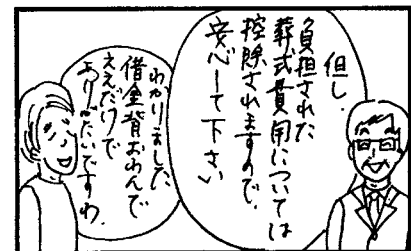 但し、
負担された
葬式費用については
控除されますので、
安心して下さい
わかりました、
借金背おわんで
ええだけで
ありがたいですわ、